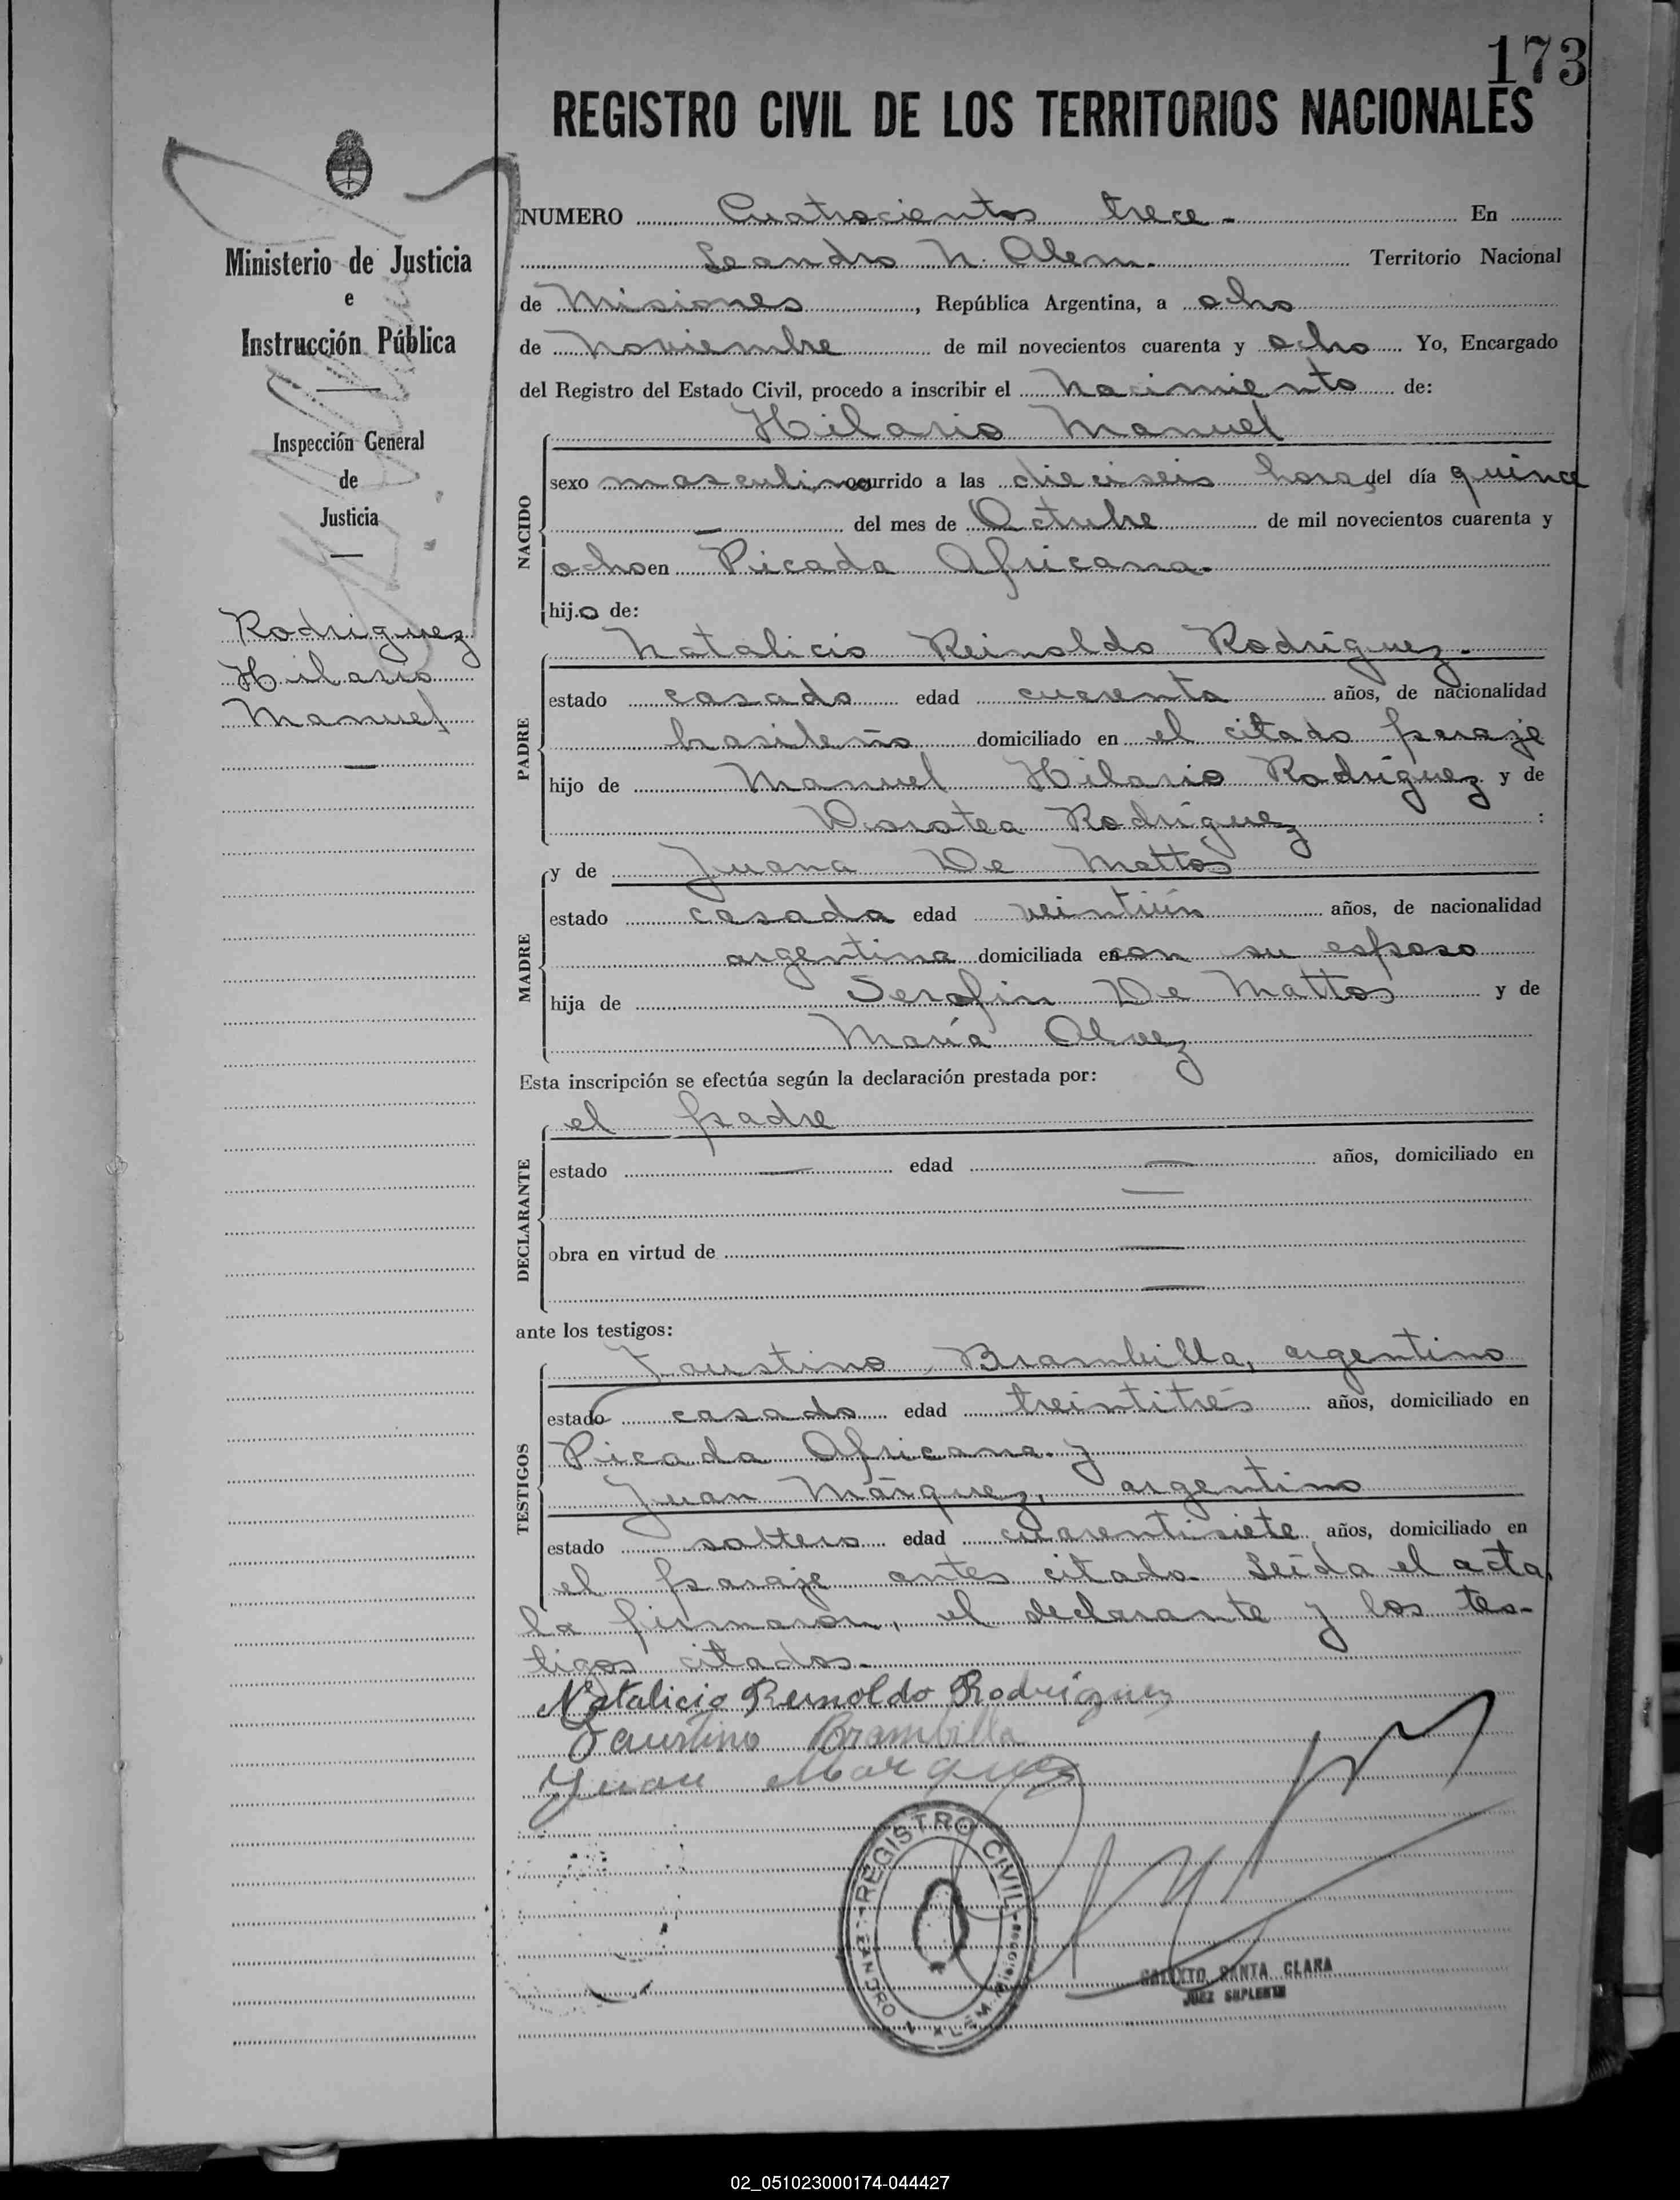 173
REGISTRO CIVIL DE LOS TERRITORIOS NACIONALES
Ministerio de Justicia
e
Instrucción Pública
Inspección General
de
Justicia
Rodríguez
Hilario
Manuel
NUMERO Cuatrocientos trece.- En
Leandro N. Alem. Territorio Nacional
de Misiones, República Argentina, a ocho
de Noviembre de mil novecientos cuarenta y ocho Yo, Encargado
del Registro del Estado Civil, procedo a inscribir el nacimiento de:
NACIDO
Hilario Manuel
sexo masculino ocurrido a las dieciseis horas del día quince
— del mes de Octubre de mil novecientos cuarenta y
ocho en Picada Africana.
hijo de:
PADRE
Natalicio Reinoldo Rodríguez.
estado casado edad cuarenta años, de nacionalidad
brasileño domiciliado en el citado paraje
hijo de Manuel Hilario Rodríguez y de
Dorotea Rodríguez :
MADRE
y de Juana De Mattos
estado casada edad veintiún años, de nacionalidad
argentina domiciliada en con su esposo
hija de Serafin De Mattos y de
María Alvez
Esta inscripción se efectúa según la declaración prestada por:
DECLARANTE
el padre
estado — edad — años, domiciliado en
—
obra en virtud de —
—
ante los testigos:
TESTIGOS
Faustino Brambilla, argentino
estado casado edad treintitrés años, domiciliado en
Picada Africana. y
Juan Márquez, argentino
estado soltero edad cuarentisiete años, domiciliado en
el paraje antes citado. Leída el acta,
la firmaron, el declarante y los tes-
tigos citados.-
Natalicio Reinoldo Rodriguez
Faustino Brambilla
Juan Marquez
REGISTRO CIVIL
LEANDRO N. ALEM. Misiones
CALIXTO SANTA CLARA
JUEZ SUPLENTE
02_051023000174-044427